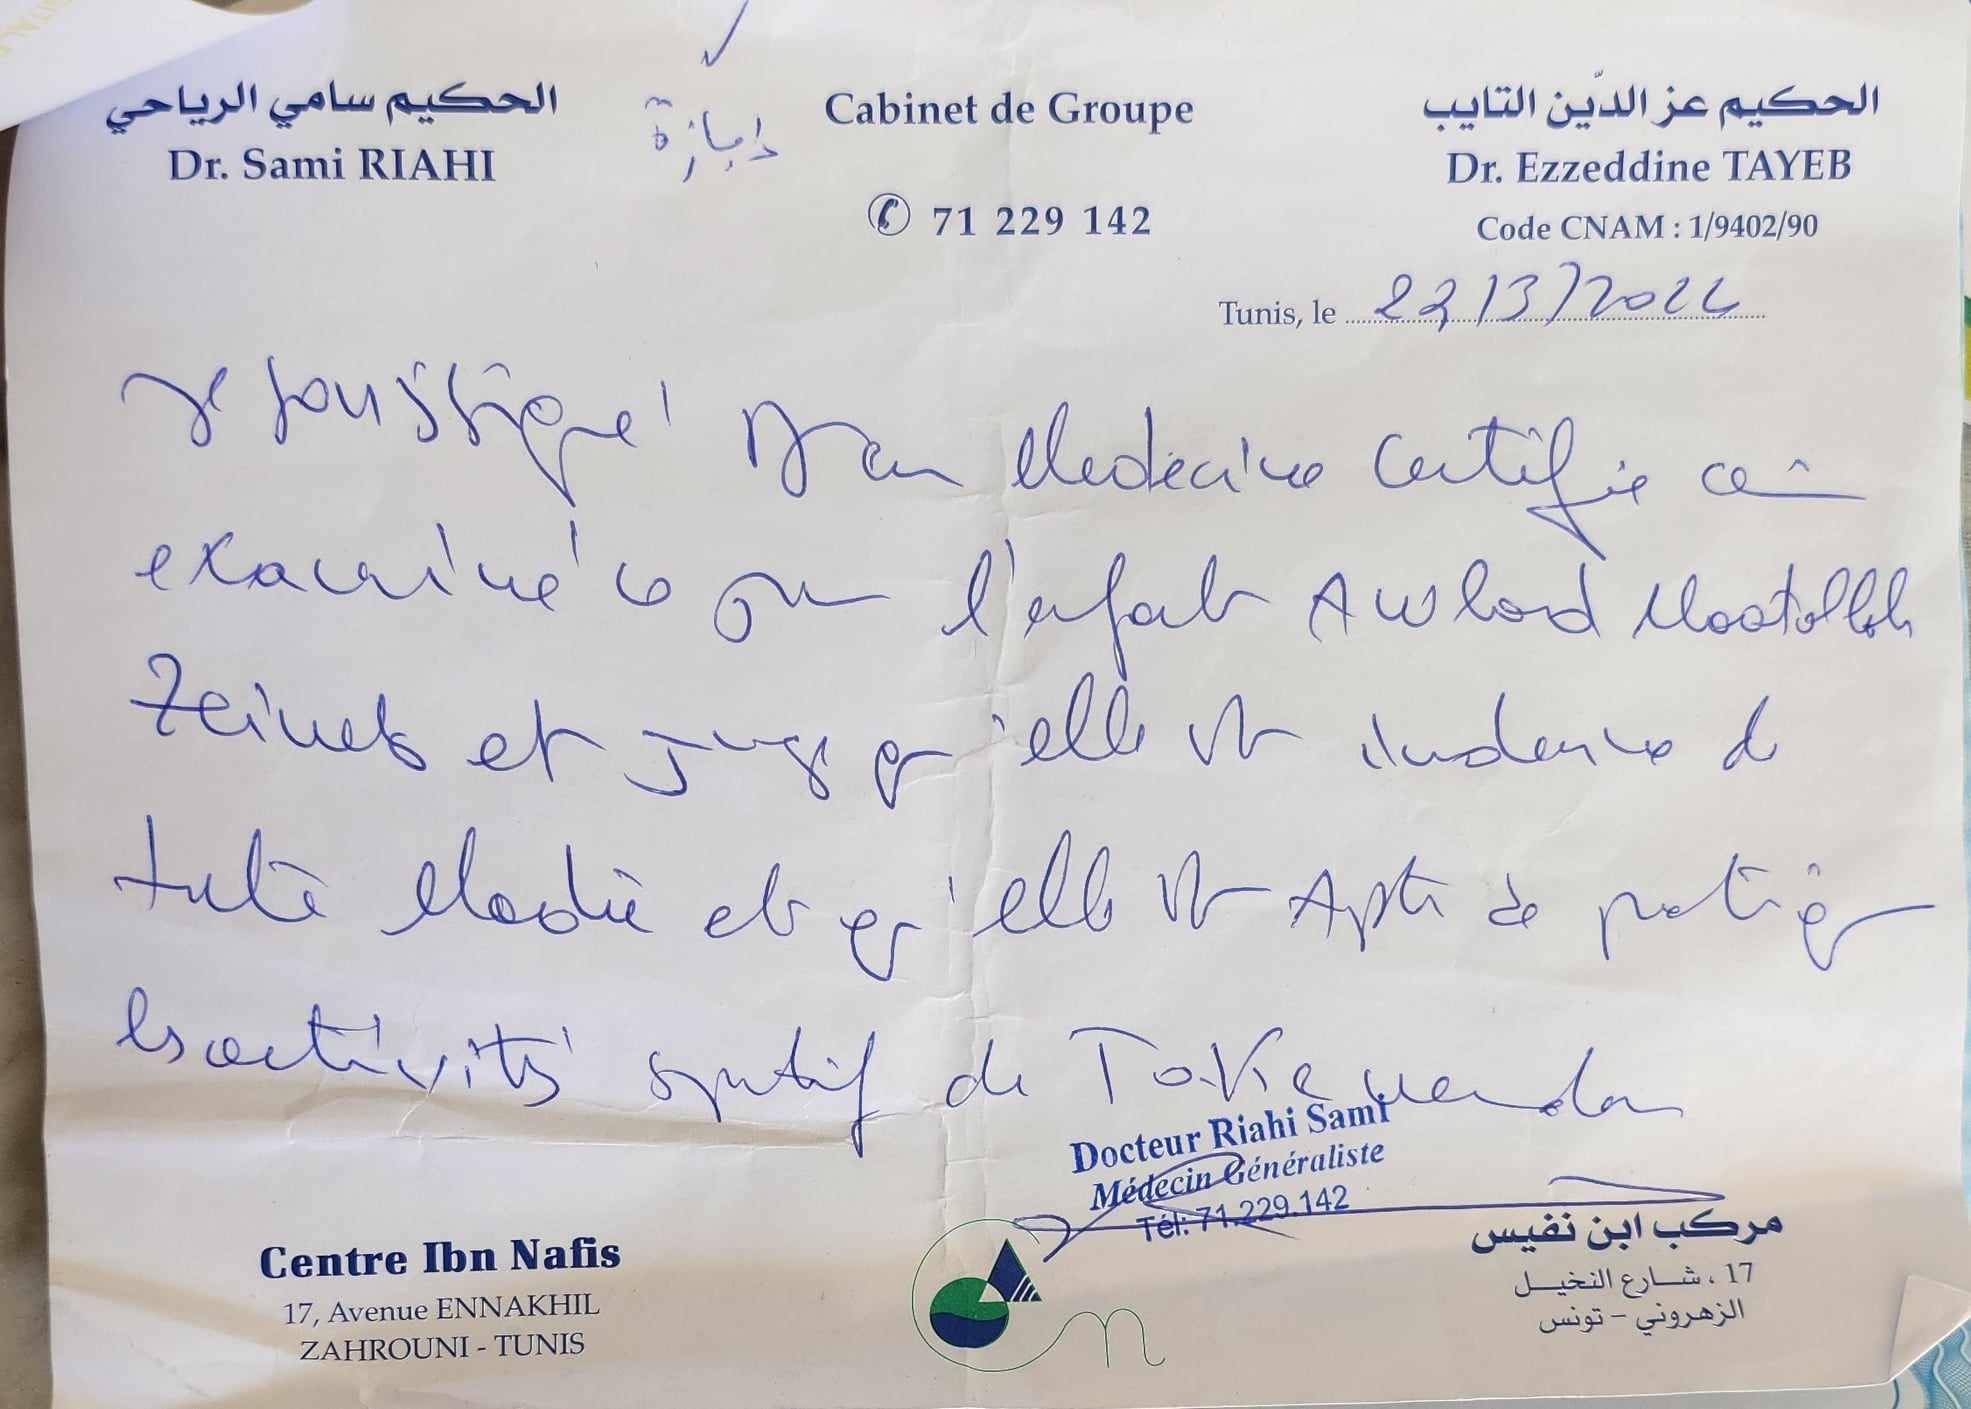 الحكيم سامي الرياحي
Dr. Sami RIAHI
إجازة
Cabinet de Groupe
71 229 142
الحكيم عز الدّين التايب
Dr. Ezzeddine TAYEB
Code CNAM : 1/9402/90
Tunis, le 22/3/2022
Je soussigné Dr en Medecine certifie avoir
examiné ce jour l'enfant Awlood
Zeineb et juge qu'elle est indemne de
toute Maladie et qu'elle est Apte de pratiquer
les activités sportif de
Docteur Riahi Sami
Médecin Généraliste
Tél: 71.229.142
Centre Ibn Nafis
17, Avenue ENNAKHIL
ZAHROUNI - TUNIS
مركب ابن نفيس
17 ، شارع النخيل
الزهروني - تونس